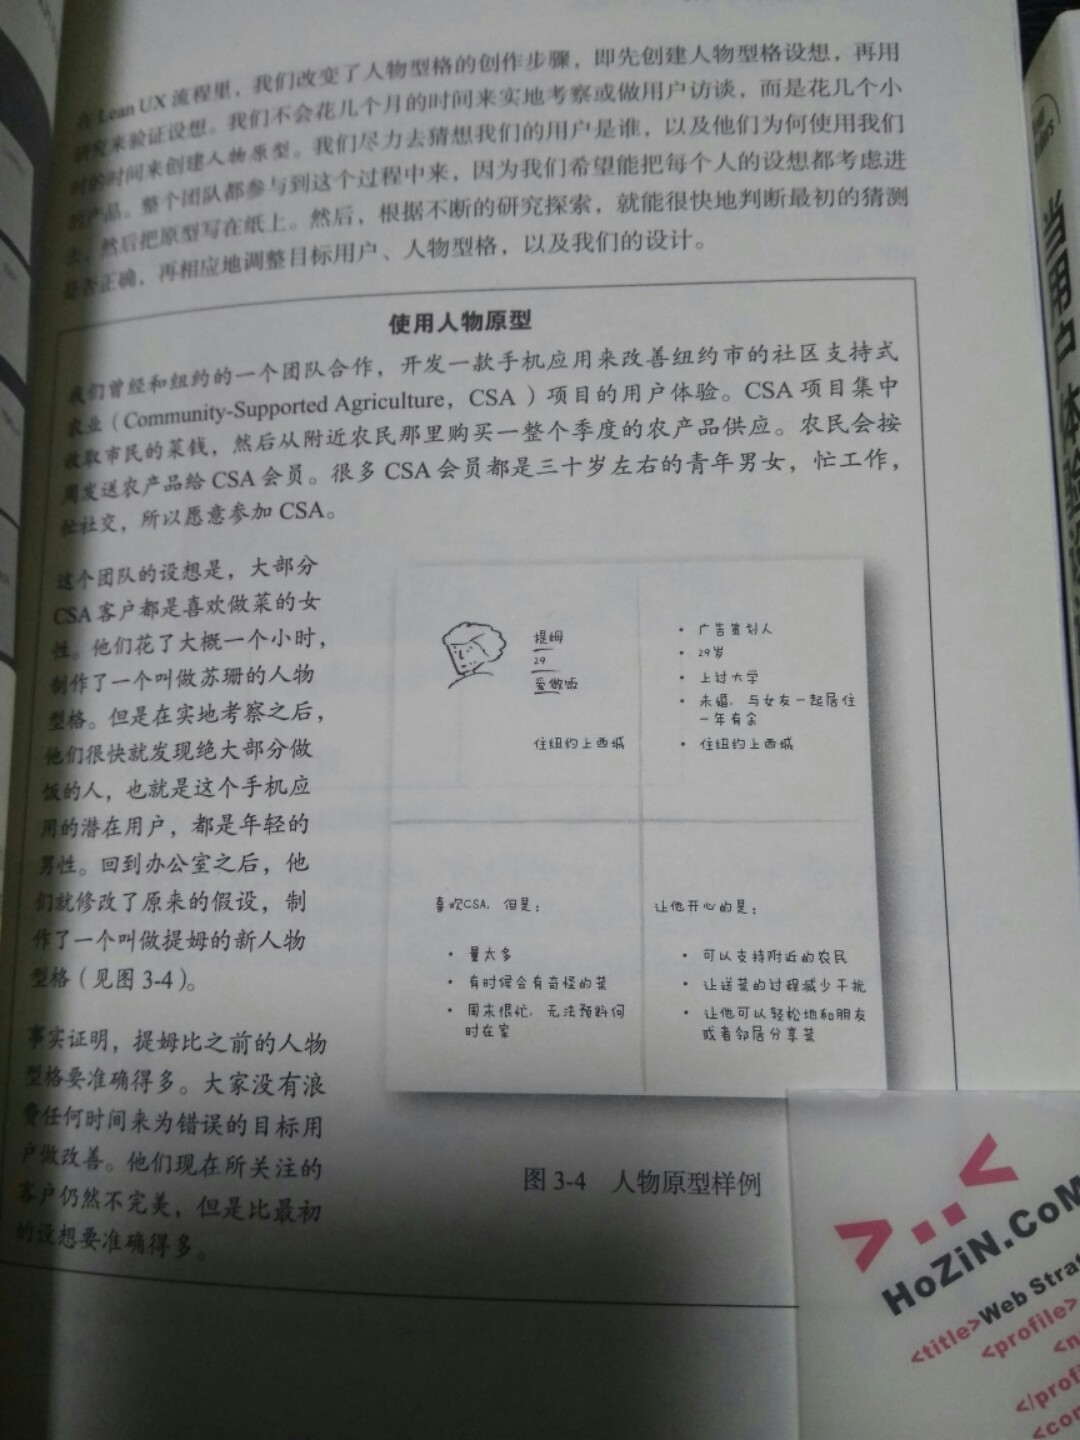 在 Lean UX 流程里，我们改变了人物型格的创作步骤，即先创建人物型格设想，再用
研究来验证设想。我们不会花几个月的时间来实地考察或做用户访谈，而是花几个小
时的时间来创建人物原型。我们尽力去猜想我们的用户是谁，以及他们为何使用我们
的产品。整个团队都参与到这个过程中来，因为我们希望能把每个人的设想都考虑进
去，然后把原型写在纸上。然后，根据不断的研究探索，就能很快地判断最初的猜测
是否正确，再相应地调整目标用户、人物型格，以及我们的设计。
使用人物原型
我们曾经和纽约的一个团队合作，开发一款手机应用来改善纽约市的社区支持式
农业（Community-Supported Agriculture，CSA）项目的用户体验。CSA 项目集中
收取市民的菜钱，然后从附近农民那里购买一整个季度的农产品供应。农民会按
周发送农产品给 CSA 会员。很多 CSA 会员都是三十岁左右的青年男女，忙工作，
忙社交，所以愿意参加 CSA。
这个团队的设想是，大部分
CSA 客户都是喜欢做菜的女
性。他们花了大概一个小时，
制作了一个叫做苏珊的人物
型格。但是在实地考察之后，
他们很快就发现绝大部分做
饭的人，也就是这个手机应
用的潜在用户，都是年轻的
男性。回到办公室之后，他
们就修改了原来的假设，制
作了一个叫做提姆的新人物
型格（见图 3-4）。
事实证明，提姆比之前的人物
型格要准确得多。大家没有浪
费任何时间来为错误的目标用
户做改善。他们现在所关注的
客户仍然不完美，但是比最初
的设想要准确得多。
提姆
29
爱做饭
住纽约上西城
• 广告策划人
• 29岁
• 上过大学
• 未婚，与女友一起居住
一年有余
• 住纽约上西城
喜欢CSA，但是：
• 量太多
• 有时候会有奇怪的菜
• 周末很忙，无法预料何
时在家
让他开心的是：
• 可以支持附近的农民
• 让送菜的过程减少干扰
• 让他可以轻松地和朋友
或者邻居分享菜
图 3-4 人物原型样例
>..<
HoZiN.CoM
<title>Web Strat
<profile>
<n
</profi
<con
当用户体验